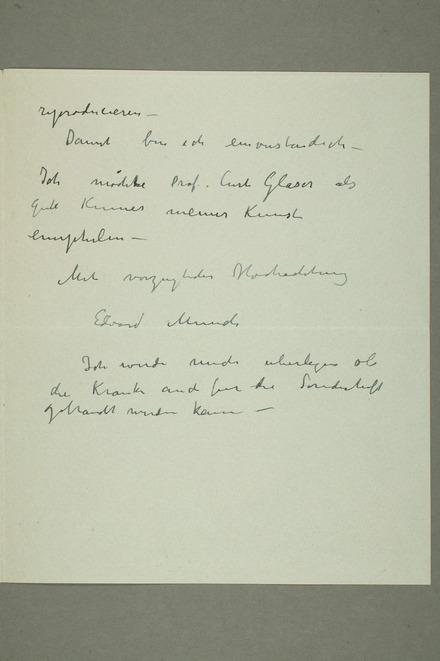 reproducieren –
Damit bin ich einverstandich –
Ich möchte Prof. Curt Glaser als
gute Kenner meiner Kunst
empfehlen –
Mit vorzuglicher Hochachtung
Edvard Munch
Ich würde mich uberlegen ob
die Kranke auch fur die
gebraucht werden kann –